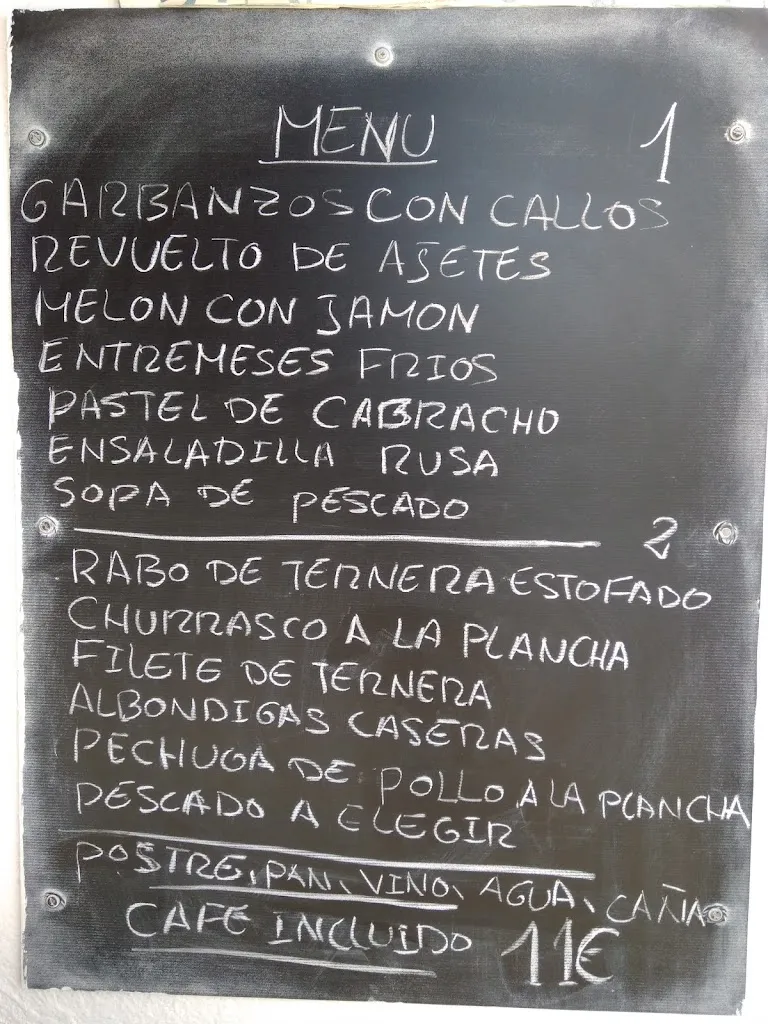 MENU 1
GARBANZOS CON CALLOS
REVUELTO DE AJETES
MELON CON JAMON
ENTREMESES FRIOS
PASTEL DE CABRACHO
ENSALADILLA RUSA
SOPA DE PESCADO
2
RABO DE TERNERA ESTOFADO
CHURRASCO A LA PLANCHA
FILETE DE TERNERA
ALBONDIGAS CASERAS
PECHUGA DE POLLO A LA PLANCHA
PESCADO A ELEGIR
POSTRE, PAN, VINO, AGUA, CAÑA
CAFE INCLUIDO 11€